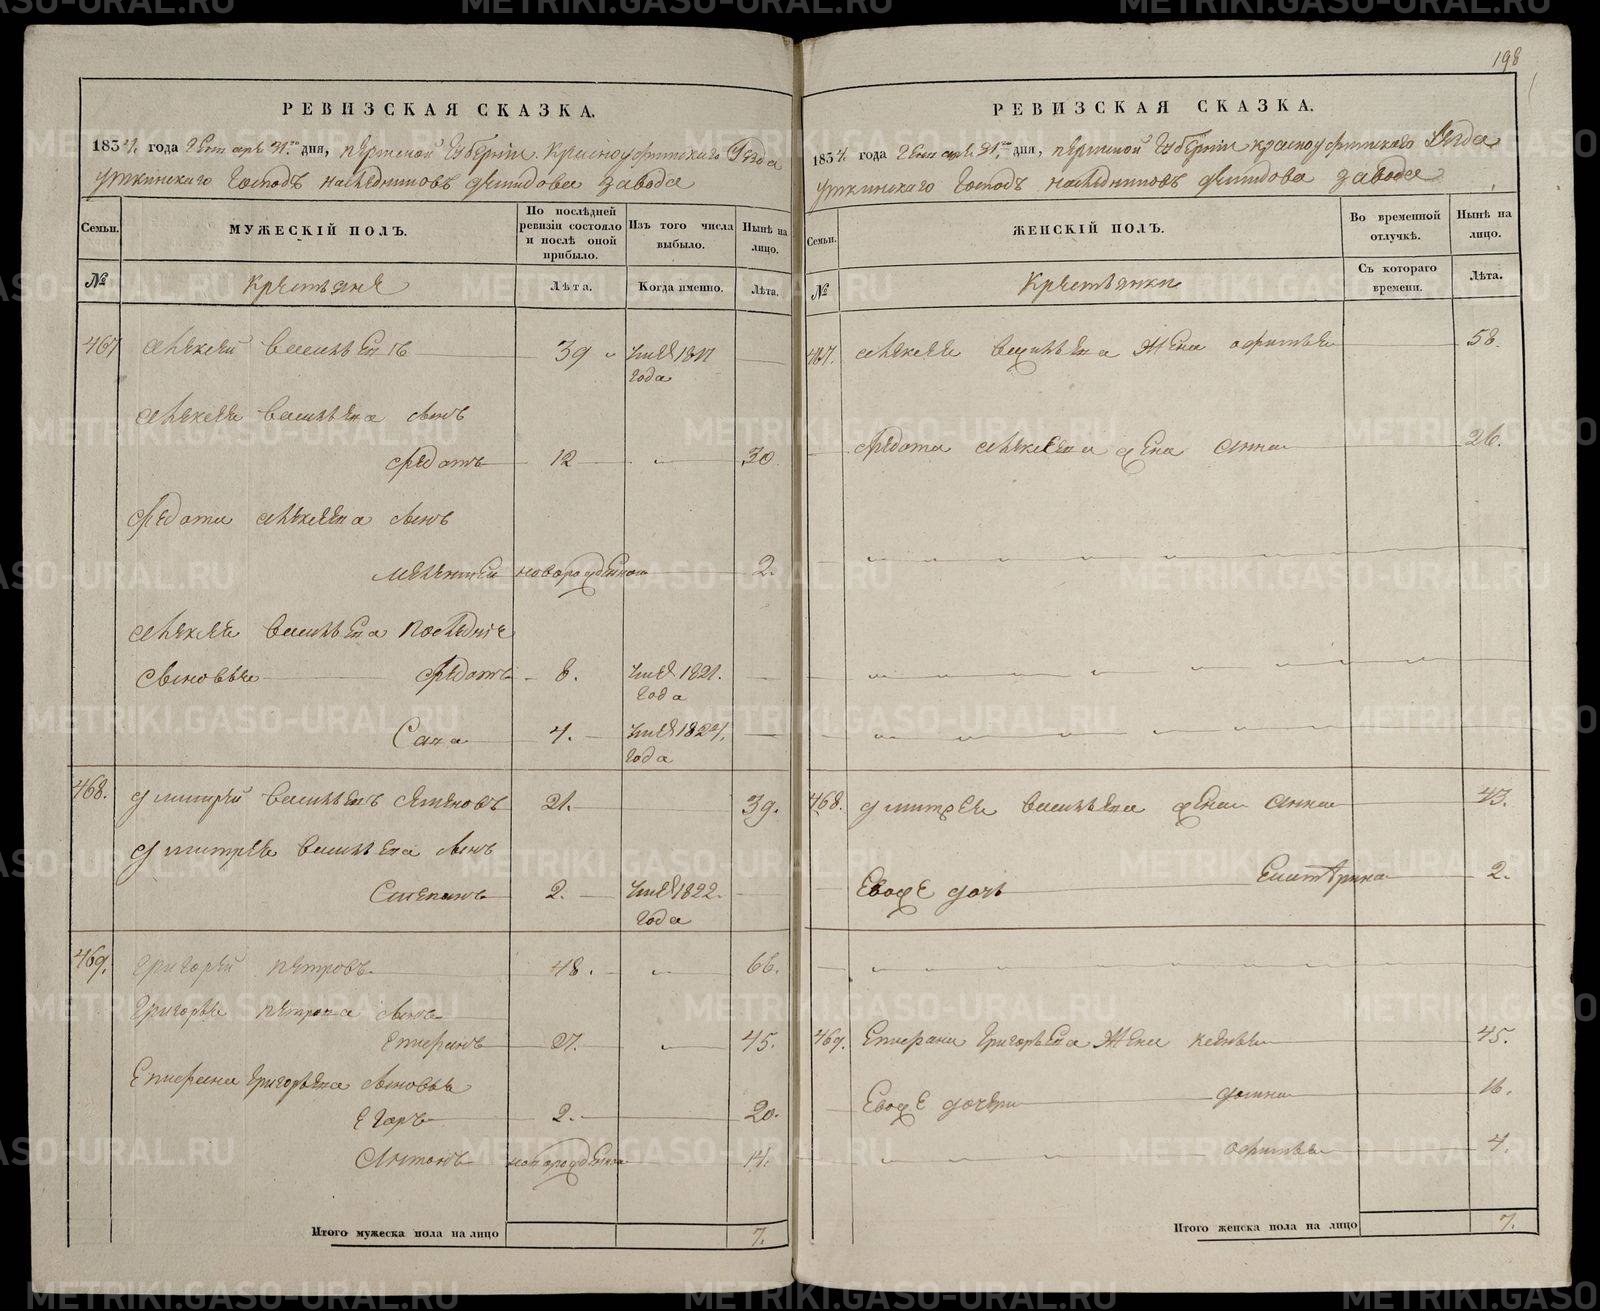 198
РЕВИЗСКАЯ СКАЗКА.
1834. года дня, Пермской Губернии Красноуфимского Уезда
Уткинского Господъ наследниковъ Демидова завода
Семьи.
МУЖЕСКІЙ ПОЛЪ.
По послѣдней ревизіи состояло и послѣ оной прибыло.
Изъ того числа выбыло.
Нынѣ на лицо.
№
Крестьяне
Лѣта.
Когда именно.
Лѣта.
467 Алексей Васильевъ 39 1817 года
Алексея Васильева сынъ
Федотъ 12 30
Федота Алексеева сынъ
Мелентей новорожденной 2.
Алексея Васильева последние
сыновья Федотъ 8. 1821. года
Сава 4. 1824. года
468. Дмитрей Васильевъ Семеновъ 21. 39.
Дмитрея Васильева сынъ
Степанъ 2. 1822. года
469. Григорей Петровъ 48. 66.
Григорья Петрова сынъ
Епифанъ 27. 45.
Епифана Григорьева сыновья
Егоръ 2. 20.
Антонъ новорожденной 14.
Итого мужеска пола на лицо 7.
РЕВИЗСКАЯ СКАЗКА.
1834. года дня, Пермской Губернии Красноуфимского Уезда
Уткинского Господъ наследниковъ Демидова завода
Семьи.
ЖЕНСКІЙ ПОЛЪ.
Во временной отлучкѣ.
Нынѣ на лицо.
№
Крестьянки
Съ котораго времени.
Лѣта.
467. Алексея Васильева жена Афимья 58.
Федота Алексеева жена Анна 26.
468. Дмитрея Васильева жена Анна 43.
Евоже дочь Екатерина 2.
469. Епифана Григорьева жена 45.
Евоже дочери Домна 16.
Афимья 4.
Итого женска пола на лицо 7.
METRIKI.GASO-URAL.RU